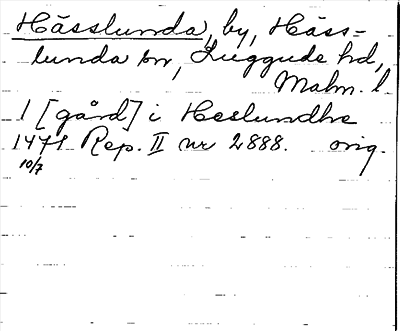 Hässlunda, by, Häss-
lunda sn, Luggude hd,
Malm. l
1 [gård] i Heslundhe
1471 Rep. II nr 2888. orig.
10/7